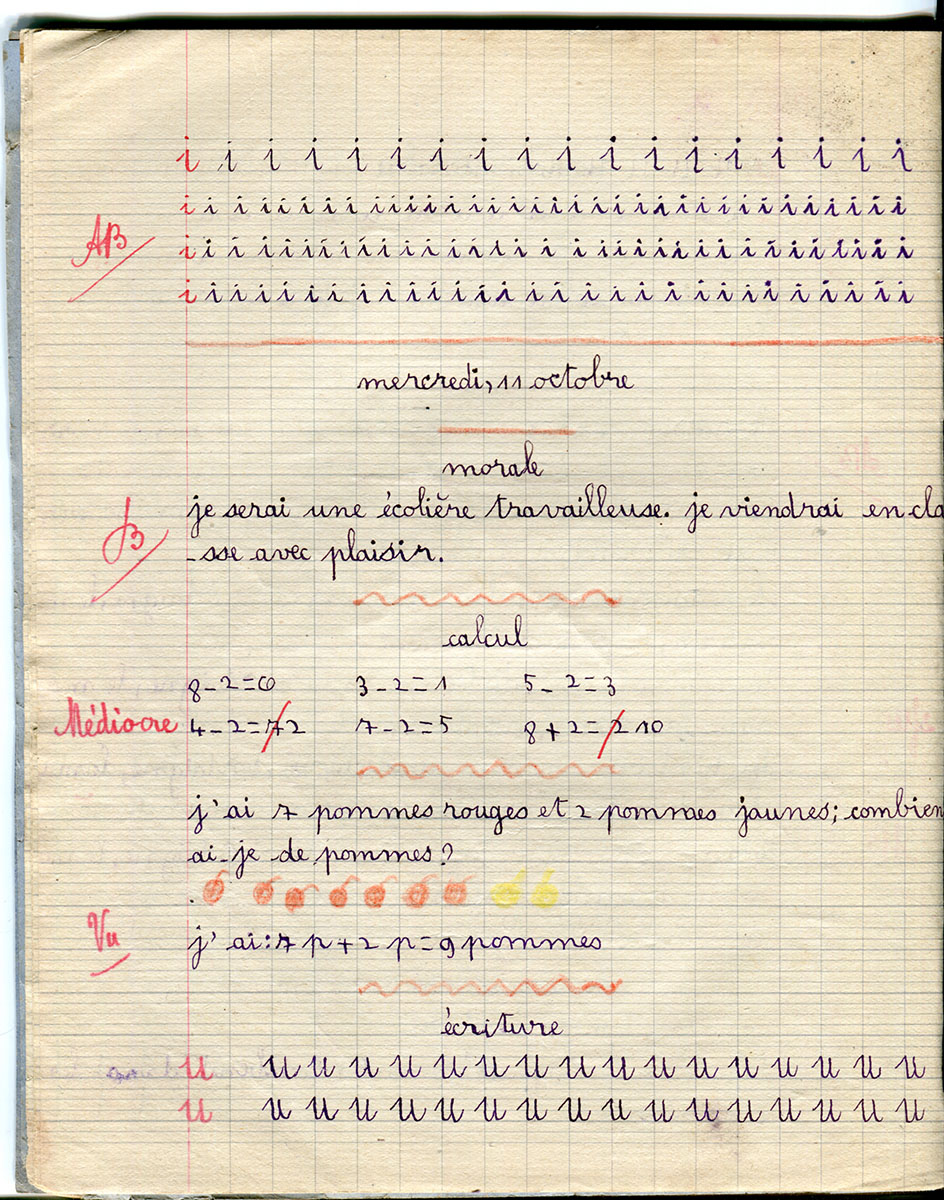 i i i i i i i i i i i i i i i i i i
i i i i i i i i i i i i i i i i i i i i i i i i i i i i i i i i i i
AB
i i i i i i i i i i i i i i i i i i i i i i i i i i i i i i i i i
i i i i i i i i i i i i i i i i i i i i i i i i i i i i i
mercredi, 11 octobre
morale
je serai une écolière travailleuse. je viendrai en cla
B
-sse avec plaisir.
calcul
8-2=6 3-2=1 5-2=3
Médiocre 4-2=7 2 7-2=5 8+2=2 10
j'ai 7 pommes rouges et 2 pommes jaunes; combien
ai-je de pommes?
Vu j'ai: 7 p + 2 p = 9 pommes
écriture
u u u u u u u u u u u u u u u u u
u u u u u u u u u u u u u u u u u